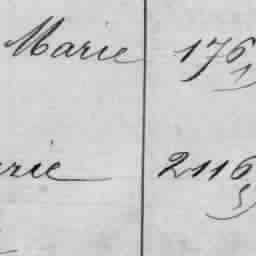 Marie 176
1)
rie 2116
5)